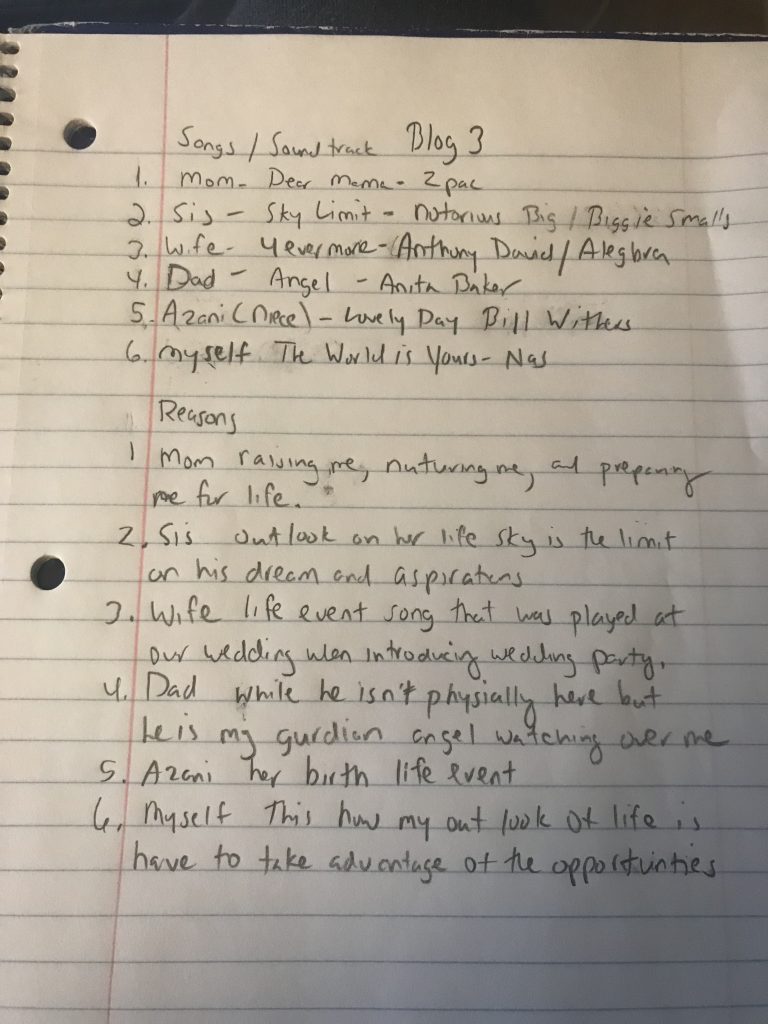 Songs / Sound track Blog 3
1. Mom- Dear Mama- 2pac
2. Sis - Sky Limit - Notorius Big / Biggie Smalls
3. Wife- 4evermore- Anthony David / Alegbra
4. Dad - Angel - Anita Baker
5. Azani (Niece) - Lovely Day Bill Withers
6. Myself The World is Yours- Nas
Reasons
1 Mom raising me, nuturing me, and preparing
me for life.
2. Sis outlook on her life sky is the limit
on his dream and aspirations
3. Wife life event song that was played at
our wedding when introducing wedding party.
4. Dad while he isn't physially here but
he is my gurdian angel watching over me
5. Azani her birth life event
6. Myself This how my out look of life is
have to take advantage of the opportunties